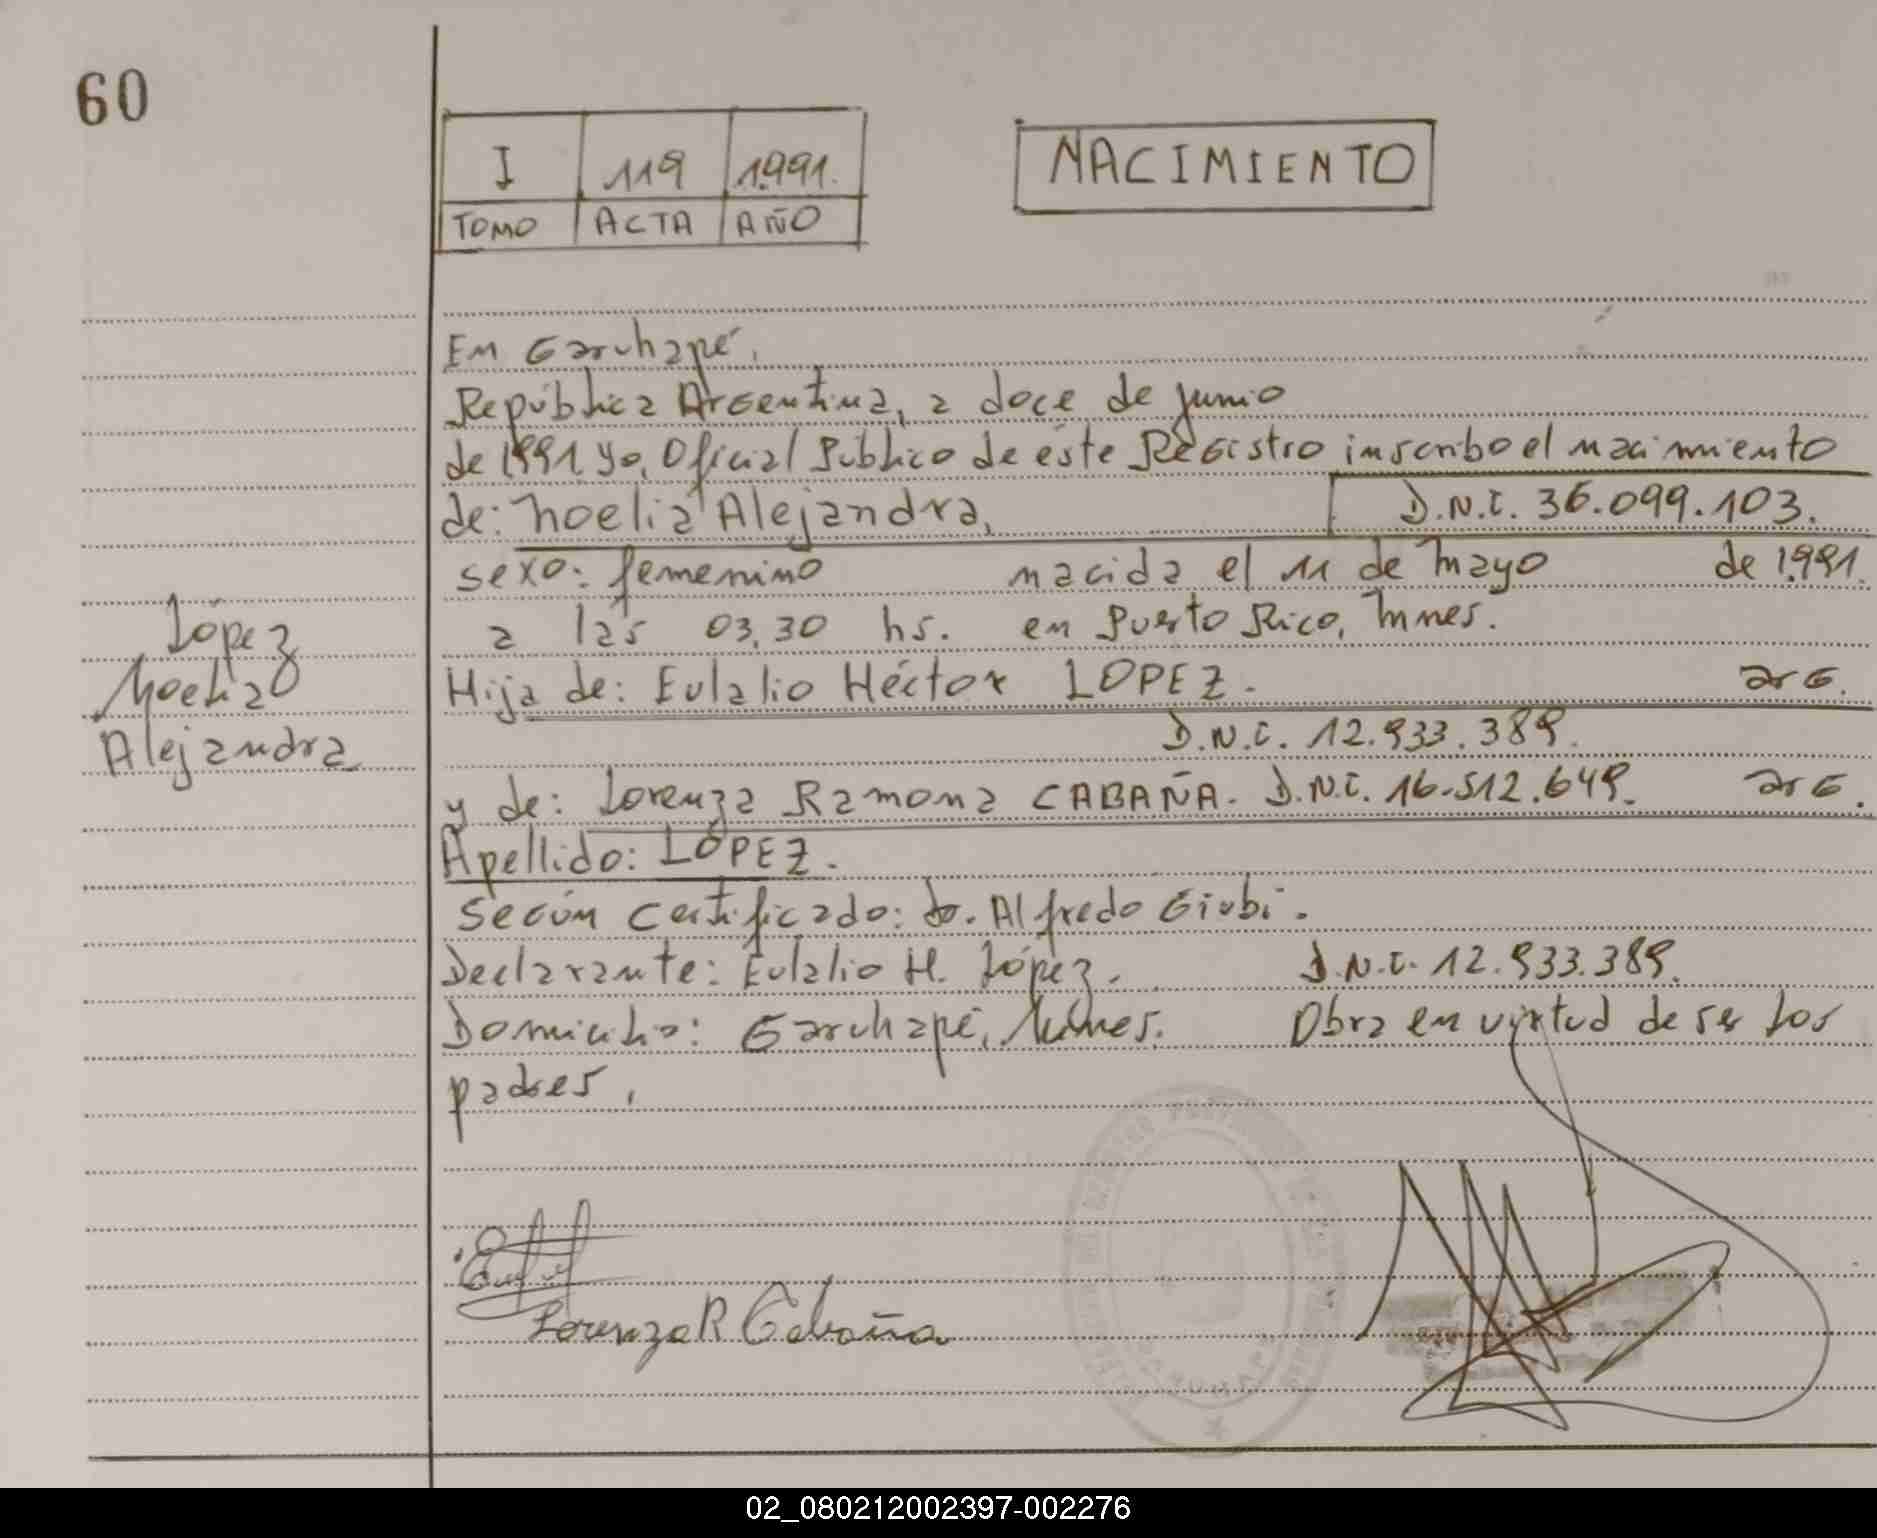 60
I 119 1.991.
TOMO ACTA AÑO
NACIMIENTO
En Garuhapé,
República Argentina, a doce de junio
de 1991 yo, Oficial Público de éste Registro inscribo el nacimiento
de: Noelia Alejandra,
D.N.I. 36.099.103.
sexo: femenino nacida el 11 de mayo de 1.991.
a las 03,30 hs. en Puerto Rico, Mnes.
Hija de: Eulalio Héctor LOPEZ. arG.
D.N.I. 12.933.389.
y de: Lorenza Ramona CABAÑA. D.N.I. 16.512.649. arG.
Apellido: LÓPEZ.
Según Certificado: Dr. Alfredo Giubi.
Declarante: Eulalio H. López. D.N.I. 12.933.389.
Domicilio: Garuhapé, Mnes. Obra en virtud de ser los
padres.
López
Noelia
Alejandra
Lorenza R Cabaña
02_080212002397-002276